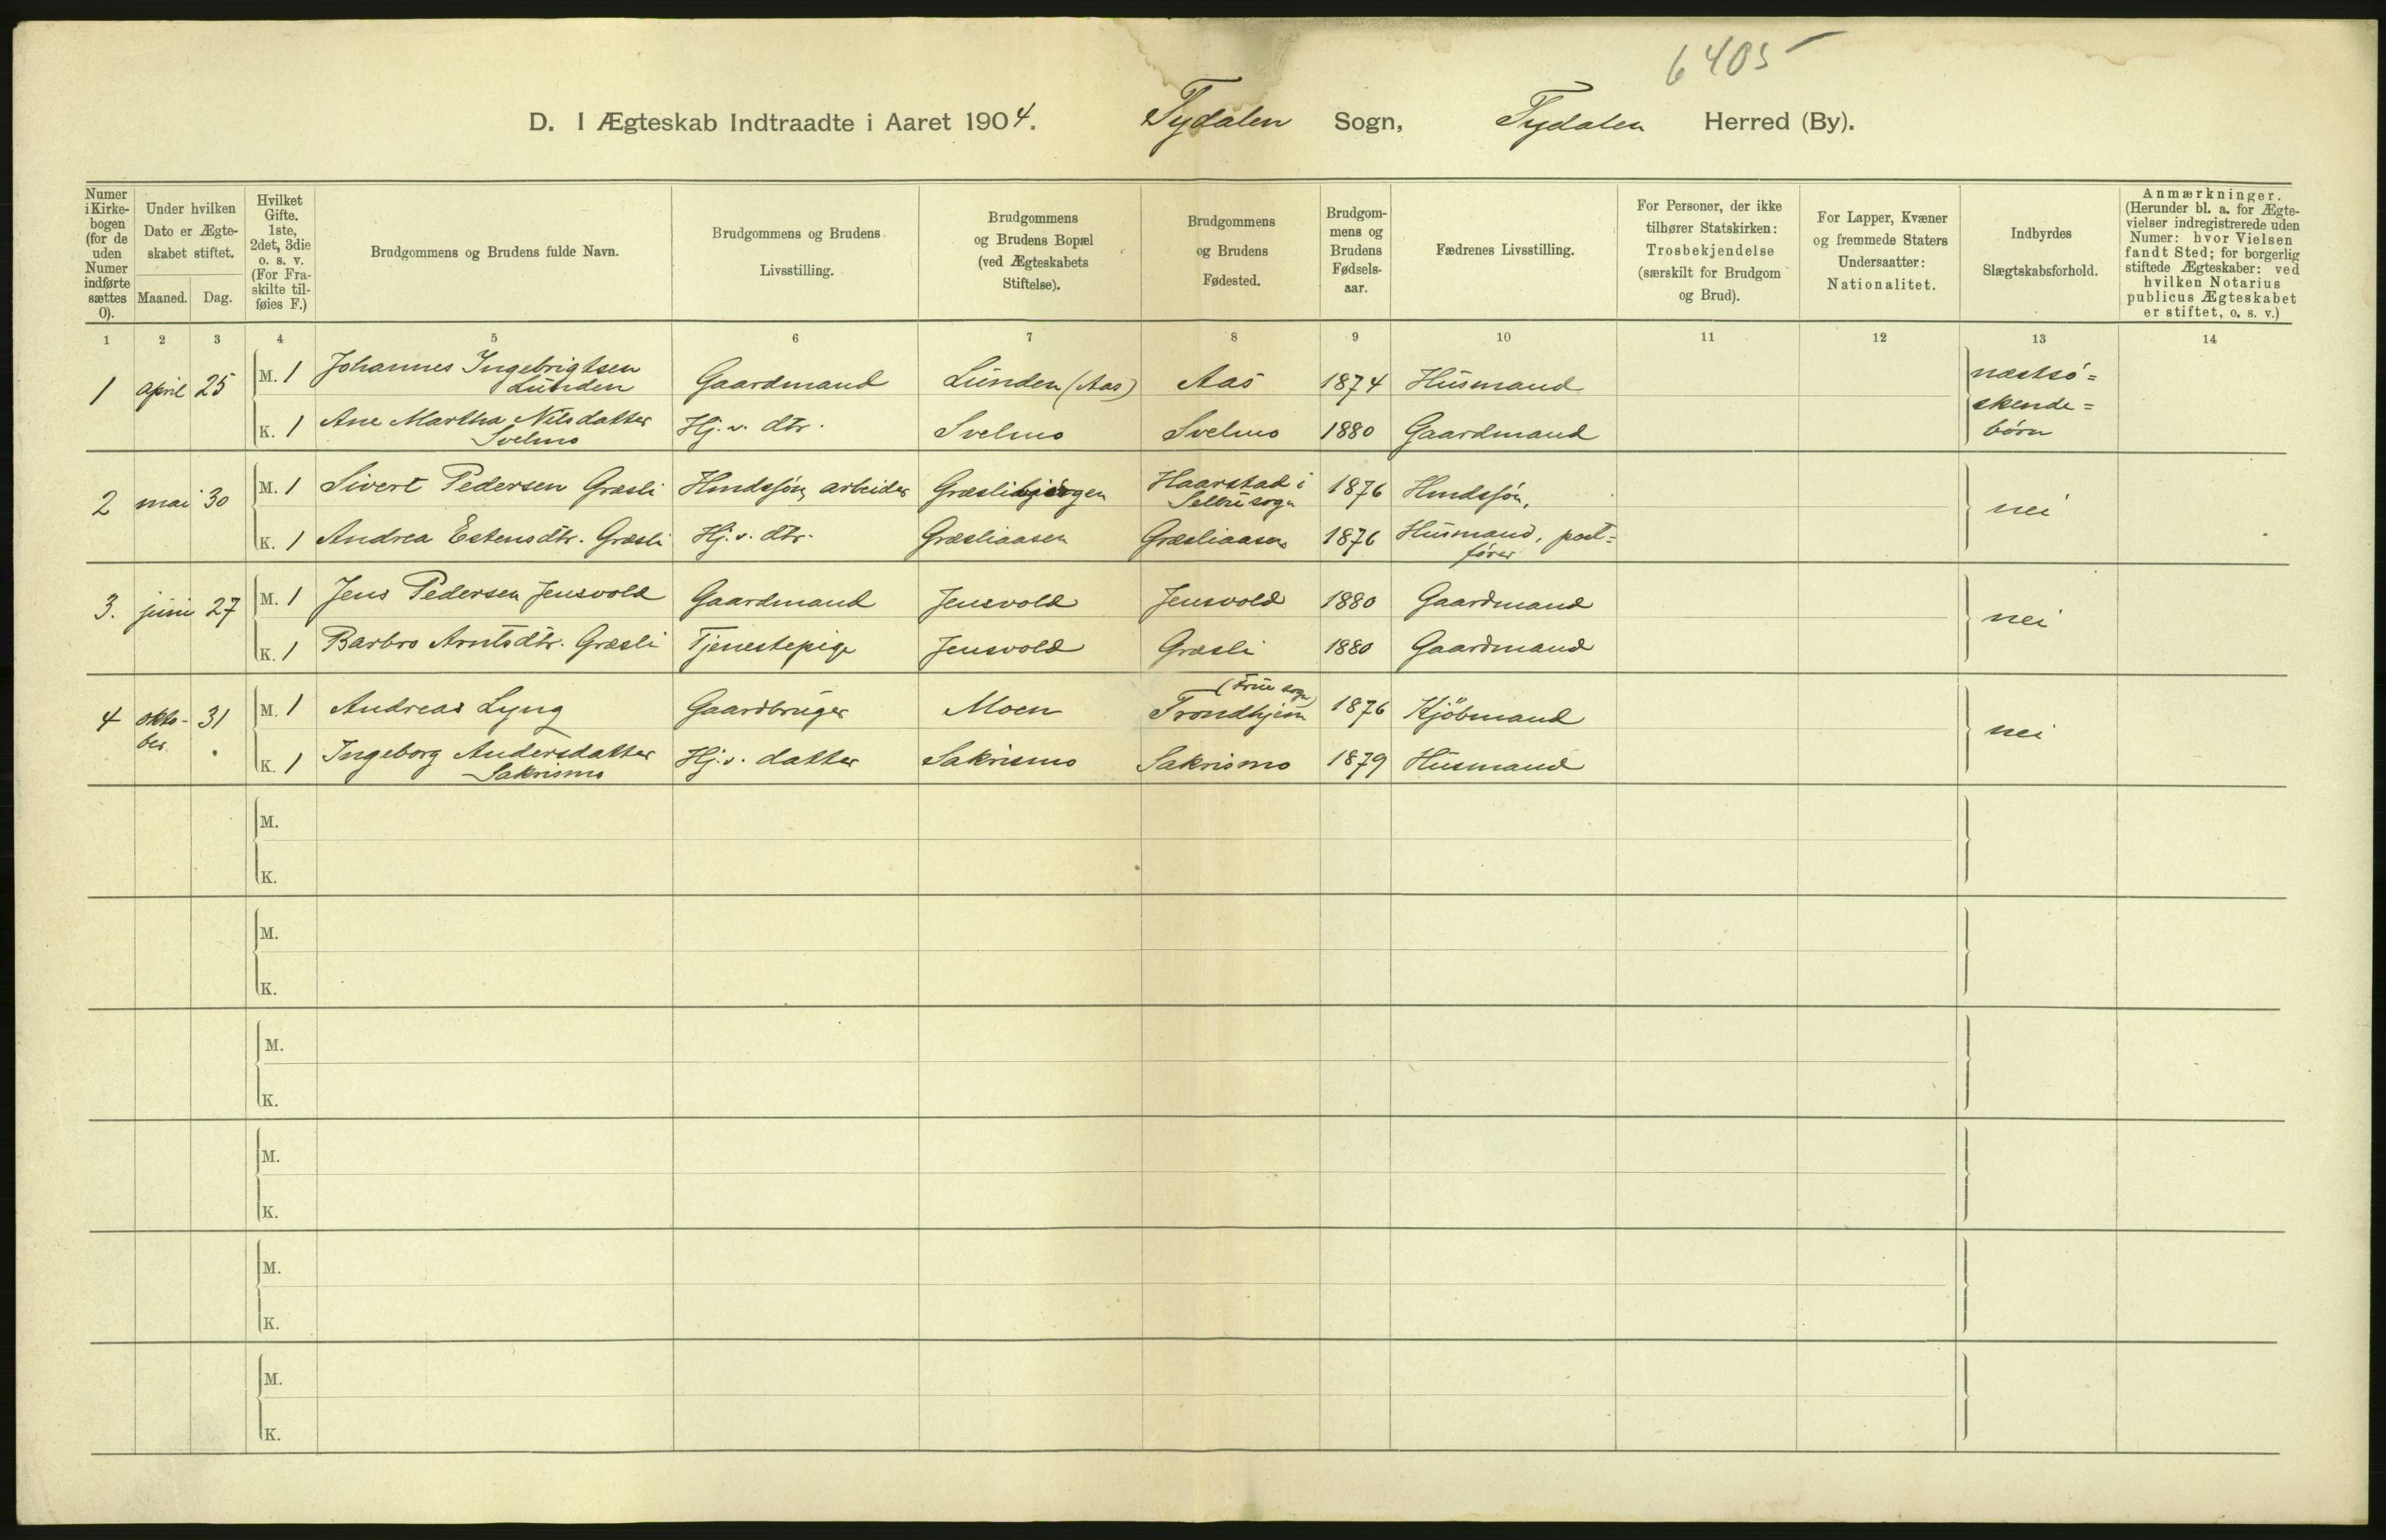 6405
D. I Ægteskab Indtraadte i Aaret 1904. Tydalen Sogn, Tydalen Herred (By).
Numer i Kirkebogen (for de uden Numer indførte sættes 0).
Under hvilken Dato er Ægteskabet stiftet.
Maaned. Dag.
Hvilket Gifte. 1ste, 2det, 3die o. s. v. (For Fraskilte tilføies F.)
Brudgommens og Brudens fulde Navn.
Brudgommens og Brudens Livsstilling.
Brudgommens og Brudens Bopæl (ved Ægteskabets Stiftelse).
Brudgommens og Brudens Fødested.
Brudgommens og Brudens Fødselsaar.
Fædrenes Livsstilling.
For Personer, der ikke tilhører Statskirken: Trosbekjendelse (særskilt for Brudgom og Brud).
For Lapper, Kvæner og fremmede Staters Undersaatter: Nationalitet.
Indbyrdes Slægtskabsforhold.
Anmærkninger. (Herunder bl. a. for Ægtevielser indregistrerede uden Numer: hvor Vielsen fandt Sted; for borgerlig stiftede Ægteskaber: ved hvilken Notarius publicus Ægteskabet er stiftet, o. s. v.)
1 2 3 4 5 6 7 8 9 10 11 12 13 14
1 april 25 M. 1 Johannes Ingebrigtsen Lunden Gaardmand Lunden (Aas) Aas 1874 Husmand næstsö=
skende=
K. 1 Ane Martha Nilsdatter Svelmo Hj. v. dtr. Svelmo Svelmo 1880 Gaardmand börn
2 mai 30 M. 1 Sivert Pedersen Græsli arbeider Haarstad i Selbu sogn 1876 nei
K. 1 Andrea Estensdtr. Græsli Hj. v. dtr. Græsliaasen Græsliaasen 1876 Husmand, post=
förer
3. juni 27 M. 1 Jens Pedersen Jensvold Gaardmand Jensvold Jensvold 1880 Gaardmand nei
K. 1 Barbro Arntsdtr. Græsli Tjenestepige Jensvold Græsli 1880 Gaardmand
4 okto-
ber 31 M. 1 Andreas Lyng Gaardbruger Moen Trondhjem (Frue sogn) 1876 Kjöbmand nei
K. 1 Ingeborg Andersdatter Sakrismo Hj. v. datter Sakrismo Sakrismo 1879 Husmand
M.
K.
M.
K.
M.
K.
M.
K.
M.
K.
M.
K.